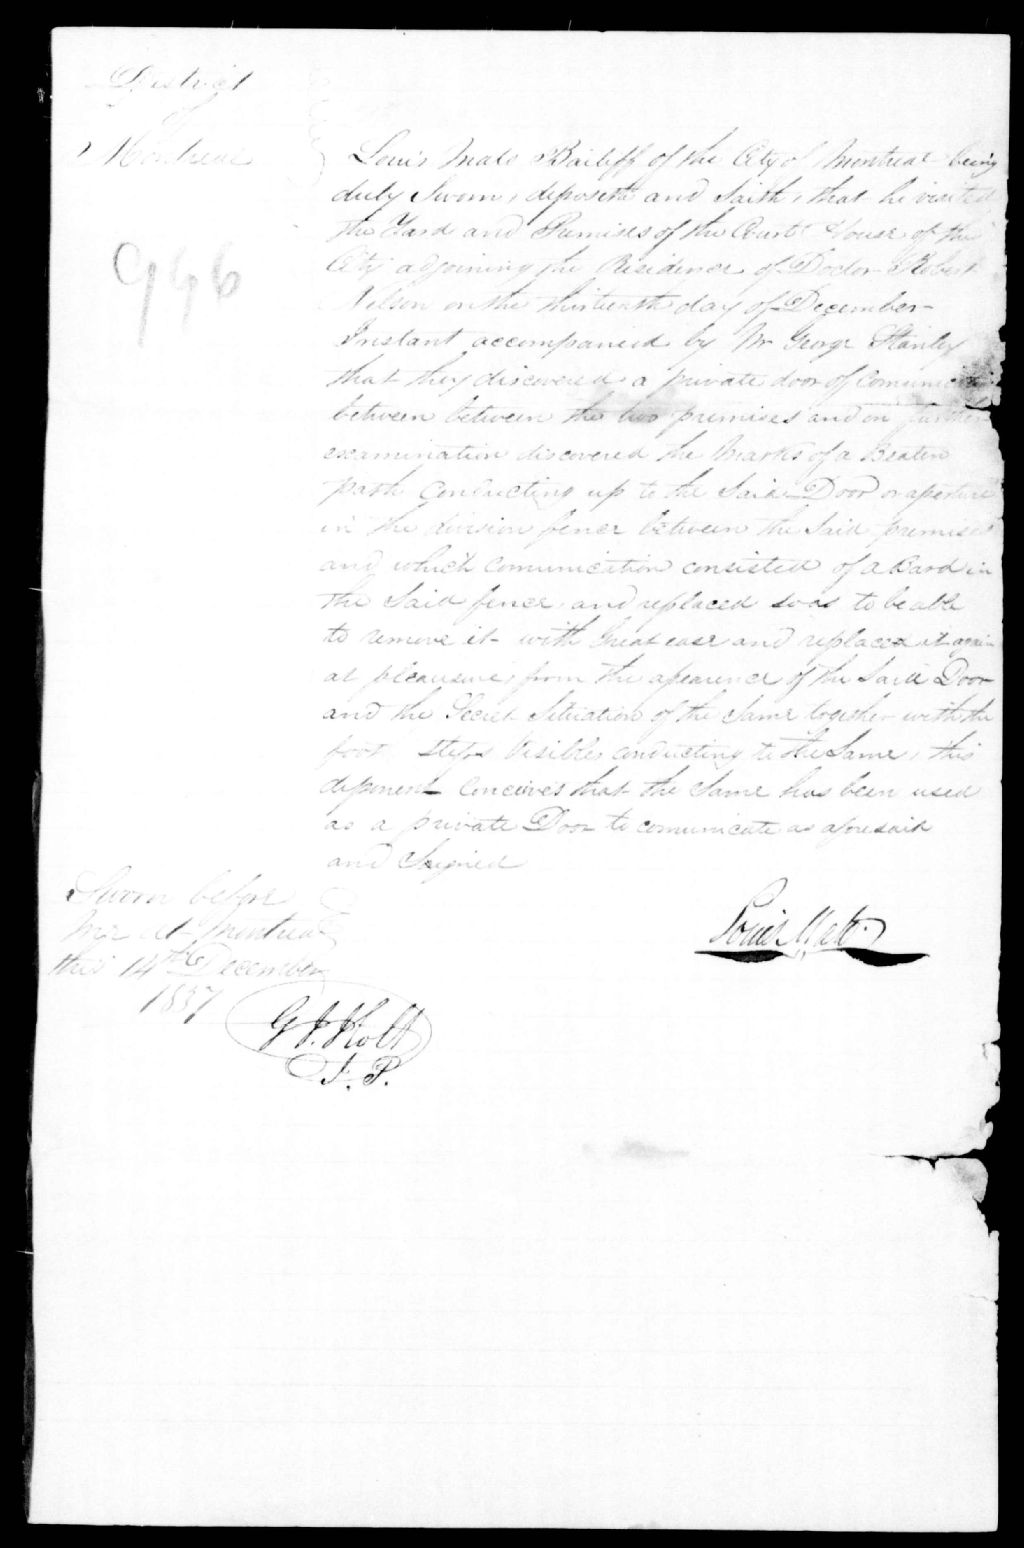 District
of
Montreal
Louis Malo Bailiff of the City of Montreal being
duly Sworn, deposeth and Saith, that he visited
the Yard and Premises of the Court House of this
City adjoining the Residence of Doctor Robert
Nelson on the thirteenth day of December
Instant accompanied by Mr George Stanley
that they discovered a private door of
between between the two premises and on further
examination discovered the Marks of a Beaten
path Conducting up to the Said Door or aperture
in the division fence between the Said premises
and which comunication consisted of a Board in
the Said fence and replaced so as to be able
to remove it with Great ease and replaced it again
at pleausure, from the apearence of the Said Door
and the Secret Situation of the Same together with the
foot Steps Visible, conducting to the Same, this
deponent Conceives that the Same has been used
as a private Door to comunicate as aforesaid
and Seigned
946
Louis Malo
Sworn before
Me At Montreal
this 14th December
1837
J. P.